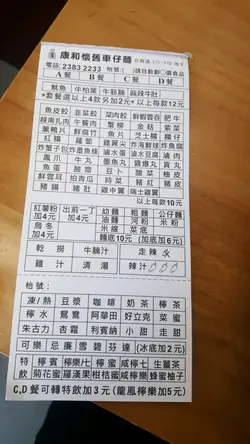 康和懷舊車仔麵
電話: 2383 2233 枱號( )請自動劃○選食品
A餐 B餐 C餐 D餐
魷魚 牛柏葉 牛筋腩 麻辣牛肚
*套餐選以上4款另加2元* 以上每款12元
魚皮餃 韮菜餃 菜肉餃 鮮雲吞 肥牛
蟹柳 金菇 紫菜
魚腐 生菜
炸蟹子包 炸魚蛋
鳳爪 牛丸 墨魚丸 魚蛋 蘿蔔
魚片 貢丸 豆卜
鮮雲耳 豬紅 豬皮
豬腸 豬肚 雞中翼 瑞士雞翼
以上每款10元
紅薯粉加4元 出前一丁加4元 幼麵 粗麵 公仔麵
油麵 河粉 米粉
烏冬加4元 米線 腸粉
麵底10元 (加底加6元)
乾撈 牛腩汁 走辣
雞汁 清湯 辣汁
枱號:
凍/熱 豆漿 咖啡 奶茶 檸茶
檸水 鴛鴦 阿華田 好立克 菜蜜
朱古力 杏霜 利賓納 小甜 走甜
可樂 忌廉 雪碧 芬達 (冰底加2元)
特飲 檸賓 檸樂/七 檸蜜 咸檸七 生薑茶
菊花蜜 羅漢果 柑桔蜜 咸檸蜜 蜂蜜柚子
C,D餐可轉特飲加3元 (龍鳳檸樂加5元)